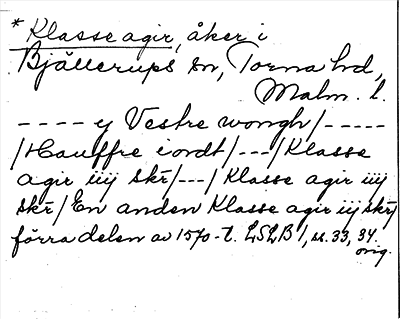 * Klasse agir, åker i
Bjällerups sn, Torna hd,
Malm. l.
---- ij Vestre wongh/-----
/Hauffre iordt/---/Klasse
agir iiij skr̄/---/Klasse agir iiij
skr̄/En anden Klasse agir iij skr̄/
förra delen av 1570-t. LSLB 1, ss. 33, 34.
orig.